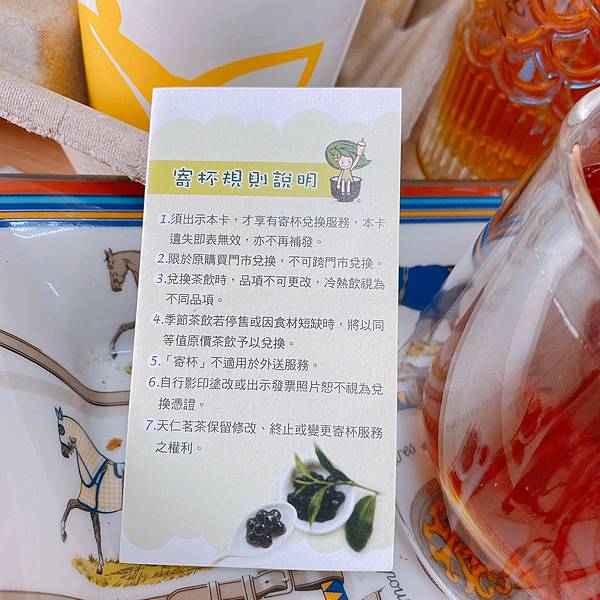 寄杯規則說明
1.須出示本卡，才享有寄杯兌換服務，本卡
遺失即表無效，亦不再補發。
2.限於原購買門市兌換，不可跨門市兌換。
3.兌換茶飲時，品項不可更改，冷熱飲視為
不同品項。
4.季節茶飲若停售或因食材短缺時，將以同
等值原價茶飲予以兌換。
5.「寄杯」不適用於外送服務。
6.自行影印塗改或出示發票照片恕不視為兌
換憑證。
7.天仁茗茶保留修改、終止或變更寄杯服務
之權利。